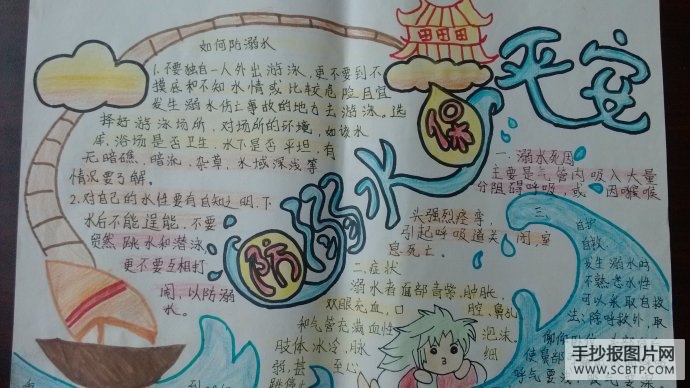 防溺水 保平安
如何防溺水
1.不要独自一人外出游泳,更不要到不
摸底和不知水情或比较危险且宜
发生溺水伤亡事故的地方去游泳。选
择好游泳场所,对场所的环境,如该水
库、浴场是否卫生,水下是否平坦,有
无暗礁、暗流、杂草,水域深浅等
情况要了解。
2.对自己的水性要有自知之明,下
水后不能逞能,不要
贸然跳水和潜泳
更不要互相打
闹,以防溺
水。
一.溺水死因
主要是气管内吸入大量
分阻碍呼吸,或 因喉喉
头强烈痉挛,
引起呼吸道关 闭,窒
息死亡。
二.症状
溺水者面部青紫、肿胀、
双眼充血,口 腔、鼻孔
和气管充满血性 泡沫。
肢体冰冷,脉 细
弱,甚至心
跳停止
三、
自护
自救
发生溺水时
不熟悉水性
可以采取自救
法:除呼救外,取
仰卧位
使鼻部
呼气要浅
手抄报图片网
WWW.SCBTP.COM